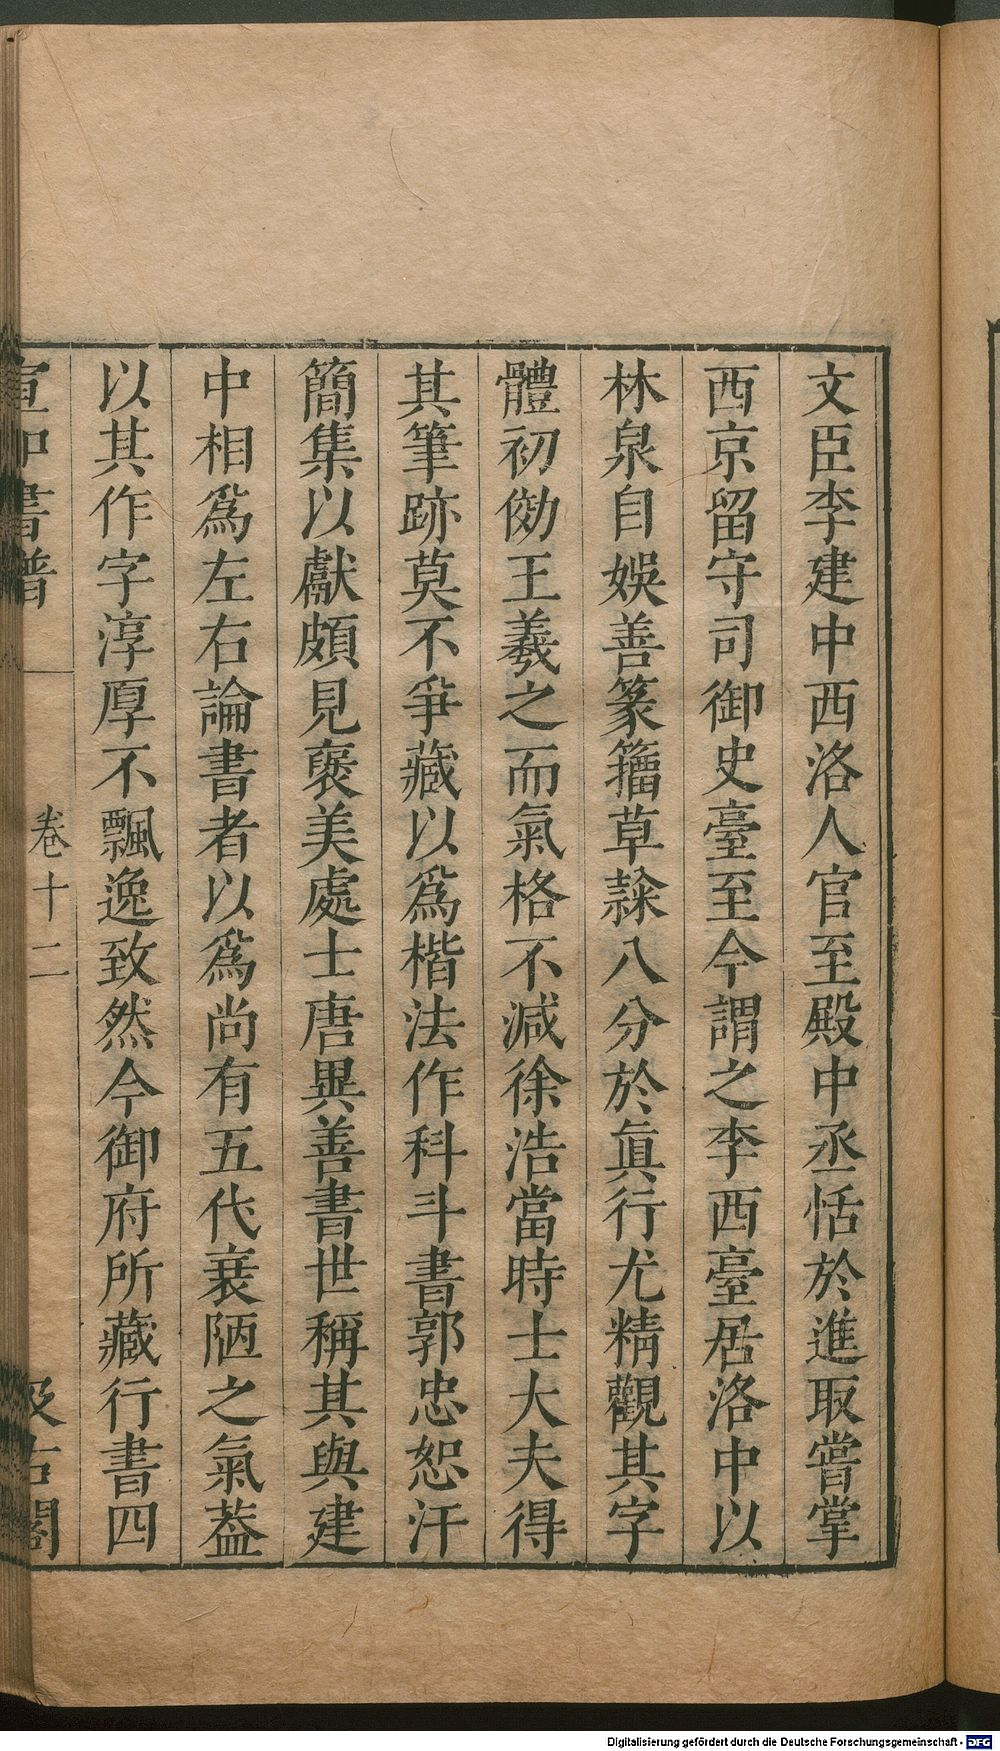 文臣李建中西洛人官至殿中丞恬於進取嘗掌
西京留守司御史臺至今謂之李西臺居洛中以
林泉自娛善篆籀草隸八分於眞行尤精觀其字
體初効王羲之而氣格不減徐浩當時士大夫得
其筆跡莫不爭藏以爲楷法作科斗書郭忠恕汗
簡集以獻頗見褒美處士唐異善書世稱其與建
中相爲左右論書者以爲尚有五代衰陋之氣葢
以其作字淳厚不飄逸致然今御府所藏行書四
宣和書譜 卷十二 汲古閣
Digitalisierung gefördert durch die Deutsche Forschungsgemeinschaft - DFG